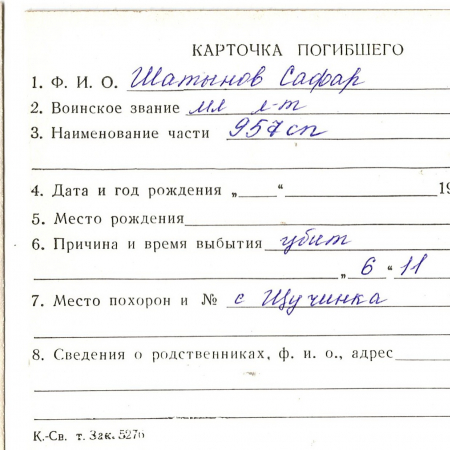 КАРТОЧКА ПОГИБШЕГО
1. Ф. И. О. Шатынов Сафар
2. Воинское звание мл л-т
3. Наименование части 957 сп
4. Дата и год рождения „ “ 19
5. Место рождения
6. Причина и время выбытия убит
„ 6 “ 11
7. Место похорон и № с Щучинка
8. Сведения о родственниках, ф. и. о., адрес
К.-Св. т. Зак. 5276